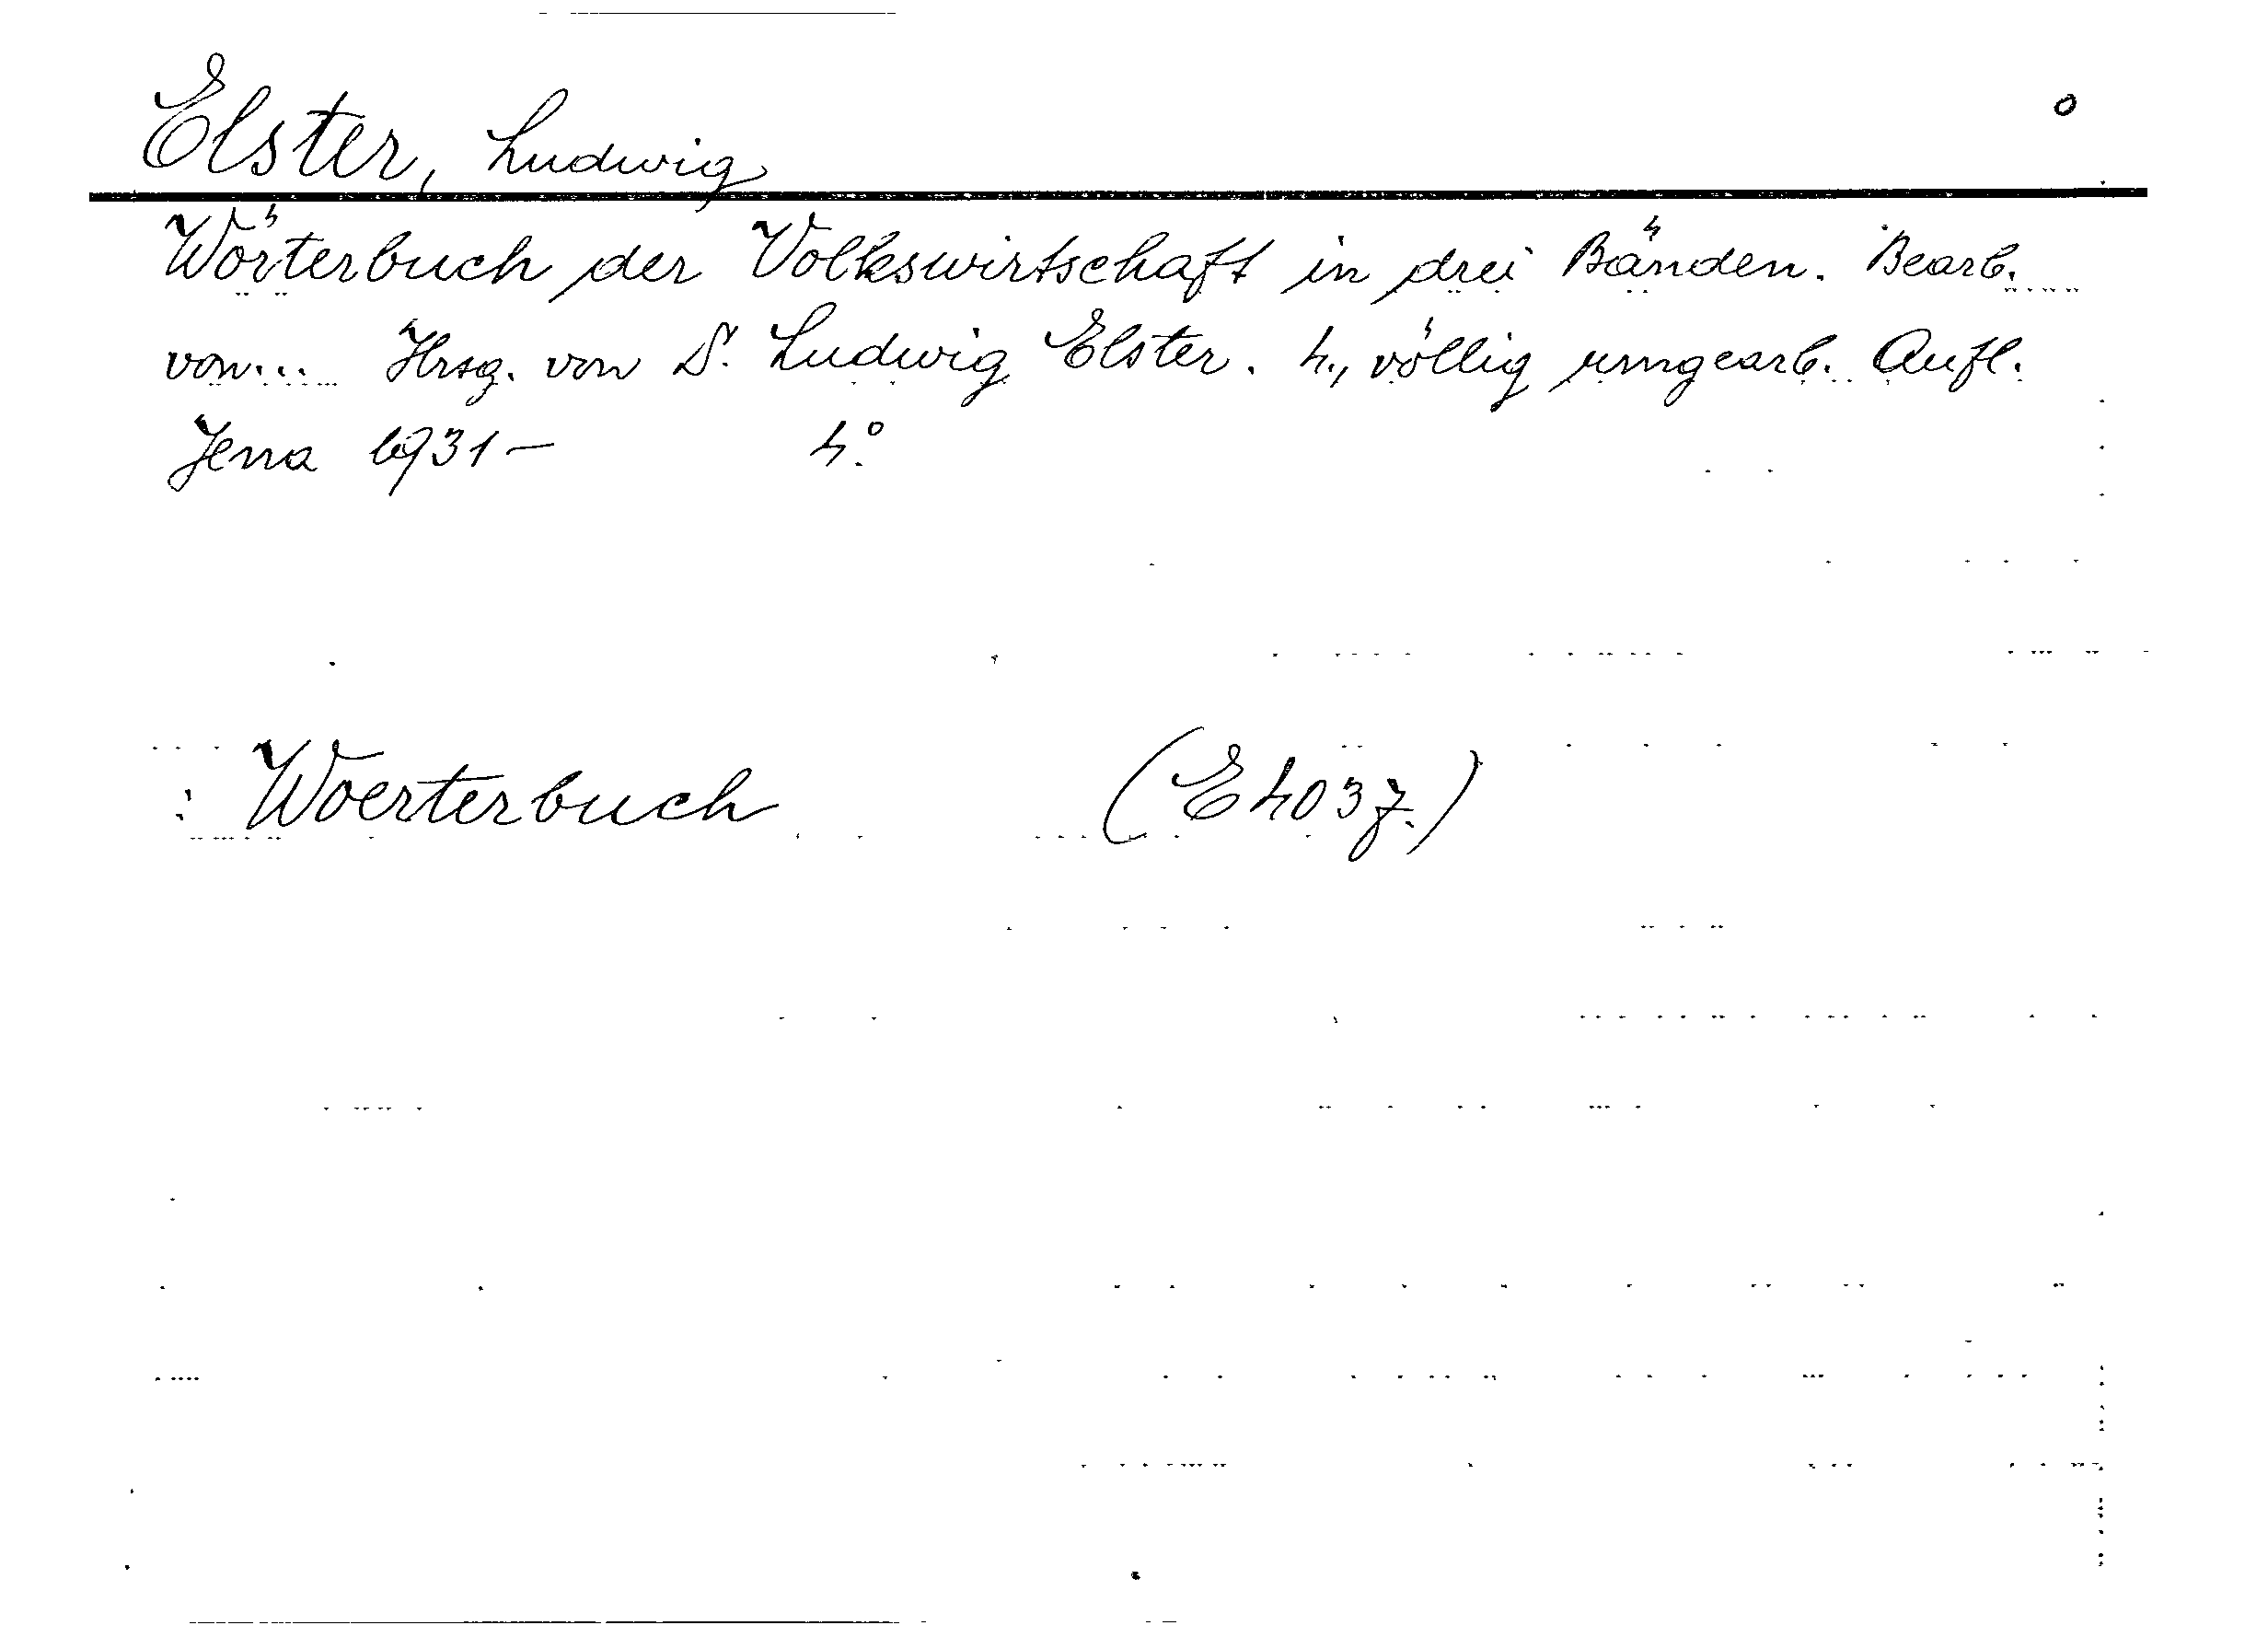 Elster, Ludwig
o
Wörterbuch der Volkswirtschaft in drei Bänden. Bearb.
von... Hrsg. von D. Ludwig Elster. 4., völlig umgearb. Aufl.
Jena 1931- 4°
: Woerterbuch (E 4037.)